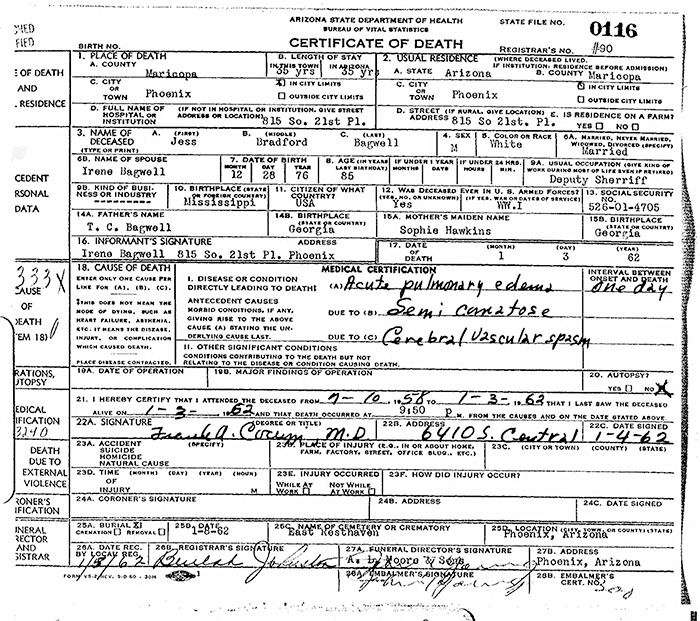 ARIZONA STATE DEPARTMENT OF HEALTH
BUREAU OF VITAL STATISTICS
STATE FILE NO. 0116
CERTIFICATE OF DEATH
BIRTH NO.
REGISTRAR'S NO. #90
1. PLACE OF DEATH
A. COUNTY Maricopa
B. LENGTH OF STAY
IN THIS TOWN 35 yrs IN ARIZONA 35 yrs
2. USUAL RESIDENCE (WHERE DECEASED LIVED. IF INSTITUTION: RESIDENCE BEFORE ADMISSION)
A. STATE Arizona B. COUNTY Maricopa
C. CITY OR TOWN Phoenix
IN CITY LIMITS
OUTSIDE CITY LIMITS
C. CITY OR TOWN Phoenix
IN CITY LIMITS
OUTSIDE CITY LIMITS
D. FULL NAME OF HOSPITAL OR INSTITUTION (IF NOT IN HOSPITAL OR INSTITUTION, GIVE STREET ADDRESS OR LOCATION) 815 So. 21st. Pl.
D. STREET ADDRESS (IF RURAL, GIVE LOCATION) 815 So. 21st. Pl.
E. IS RESIDENCE ON A FARM? YES NO
3. NAME OF DECEASED (TYPE OR PRINT)
A. (FIRST) Jess
B. (MIDDLE) Bradford
C. (LAST) Bagwell
4. SEX M
5. COLOR OR RACE White
6A. MARRIED, NEVER MARRIED, WIDOWED, DIVORCED (SPECIFY) Married
6B. NAME OF SPOUSE Irene Bagwell
7. DATE OF BIRTH
MONTH 12 DAY 28 YEAR 76
8. AGE (IN YEARS LAST BIRTHDAY) 85
IF UNDER 1 YEAR MONTHS DAYS
IF UNDER 24 HRS. HOURS MIN.
9A. USUAL OCCUPATION (GIVE KIND OF WORK DURING MOST OF LIFE EVEN IF RETIRED) Deputy Sherriff
9B. KIND OF BUSINESS OR INDUSTRY
10. BIRTHPLACE (STATE OR FOREIGN COUNTRY) Mississippi
11. CITIZEN OF WHAT COUNTRY? USA
12. WAS DECEASED EVER IN U. S. ARMED FORCES?
(YES, NO, OR UNKNOWN) Yes (IF YES, WAR OR DATES OF SERVICE) WW.I
13. SOCIAL SECURITY NO. 526-01-4705
14A. FATHER'S NAME T. C. Bagwell
14B. BIRTHPLACE (STATE OR COUNTRY) Georgia
15A. MOTHER'S MAIDEN NAME Sophie Hawkins
15B. BIRTHPLACE (STATE OR COUNTRY) Georgia
16. INFORMANT'S SIGNATURE ADDRESS
Irene Bagwell 815 So. 21st Pl. Phoenix
17. DATE OF DEATH (MONTH) 1 (DAY) 3 (YEAR) 62
18. CAUSE OF DEATH
ENTER ONLY ONE CAUSE PER LINE FOR (A), (B), (C).
THIS DOES NOT MEAN THE MODE OF DYING, SUCH AS HEART FAILURE, ASTHENIA, ETC. IT MEANS THE DISEASE, INJURY, OR COMPLICATION WHICH CAUSED DEATH.
PLACE DISEASE CONTRACTED.
MEDICAL CERTIFICATION
INTERVAL BETWEEN ONSET AND DEATH
I. DISEASE OR CONDITION DIRECTLY LEADING TO DEATH (A) Acute pulmonary edema one day
ANTECEDENT CAUSES
MORBID CONDITIONS, IF ANY, GIVING RISE TO THE ABOVE CAUSE (A) STATING THE UNDERLYING CAUSE LAST.
DUE TO (B) Semi comatose
DUE TO (C) Cerebral vascular spasm
II. OTHER SIGNIFICANT CONDITIONS
CONDITIONS CONTRIBUTING TO THE DEATH BUT NOT RELATING TO THE DISEASE OR CONDITION CAUSING DEATH.
19A. DATE OF OPERATION
19B. MAJOR FINDINGS OF OPERATION
20. AUTOPSY? YES NO X
21. I HEREBY CERTIFY THAT I ATTENDED THE DECEASED FROM 7-10 1958 TO 1-3-1962 THAT I LAST SAW THE DECEASED
ALIVE ON 1-3-1962 AND THAT DEATH OCCURRED AT 9:50 P M. FROM THE CAUSES AND ON THE DATE STATED ABOVE.
22A. SIGNATURE (DEGREE OR TITLE) Frank A. Corum M.D
22B. ADDRESS 6410 S. Central
22C. DATE SIGNED 1-4-62
23A. ACCIDENT SUICIDE HOMICIDE NATURAL CAUSE
23B. PLACE OF INJURY (E.G., IN OR ABOUT HOME, FARM, FACTORY, STREET, OFFICE BLDG., ETC.)
23C. (CITY OR TOWN) (COUNTY) (STATE)
23D. TIME OF INJURY (MONTH) (DAY) (YEAR) (HOUR) M
23E. INJURY OCCURRED
WHILE AT WORK NOT WHILE AT WORK
23F. HOW DID INJURY OCCUR?
24A. CORONER'S SIGNATURE
24B. ADDRESS
24C. DATE SIGNED
25A. BURIAL X CREMATION REMOVAL
25B. DATE 1-8-62
25C. NAME OF CEMETERY OR CREMATORY East Resthaven
25D. LOCATION (CITY, TOWN, OR COUNTY) (STATE) Phoenix, Arizona
26A. DATE REC. BY LOCAL REG. 1/5/62
26B. REGISTRAR'S SIGNATURE Beulah Johnston
27A. FUNERAL DIRECTOR'S SIGNATURE A. L. Moore & Sons
27B. ADDRESS Phoenix, Arizona
28A. EMBALMER'S SIGNATURE
28B. EMBALMER'S CERT. NO.